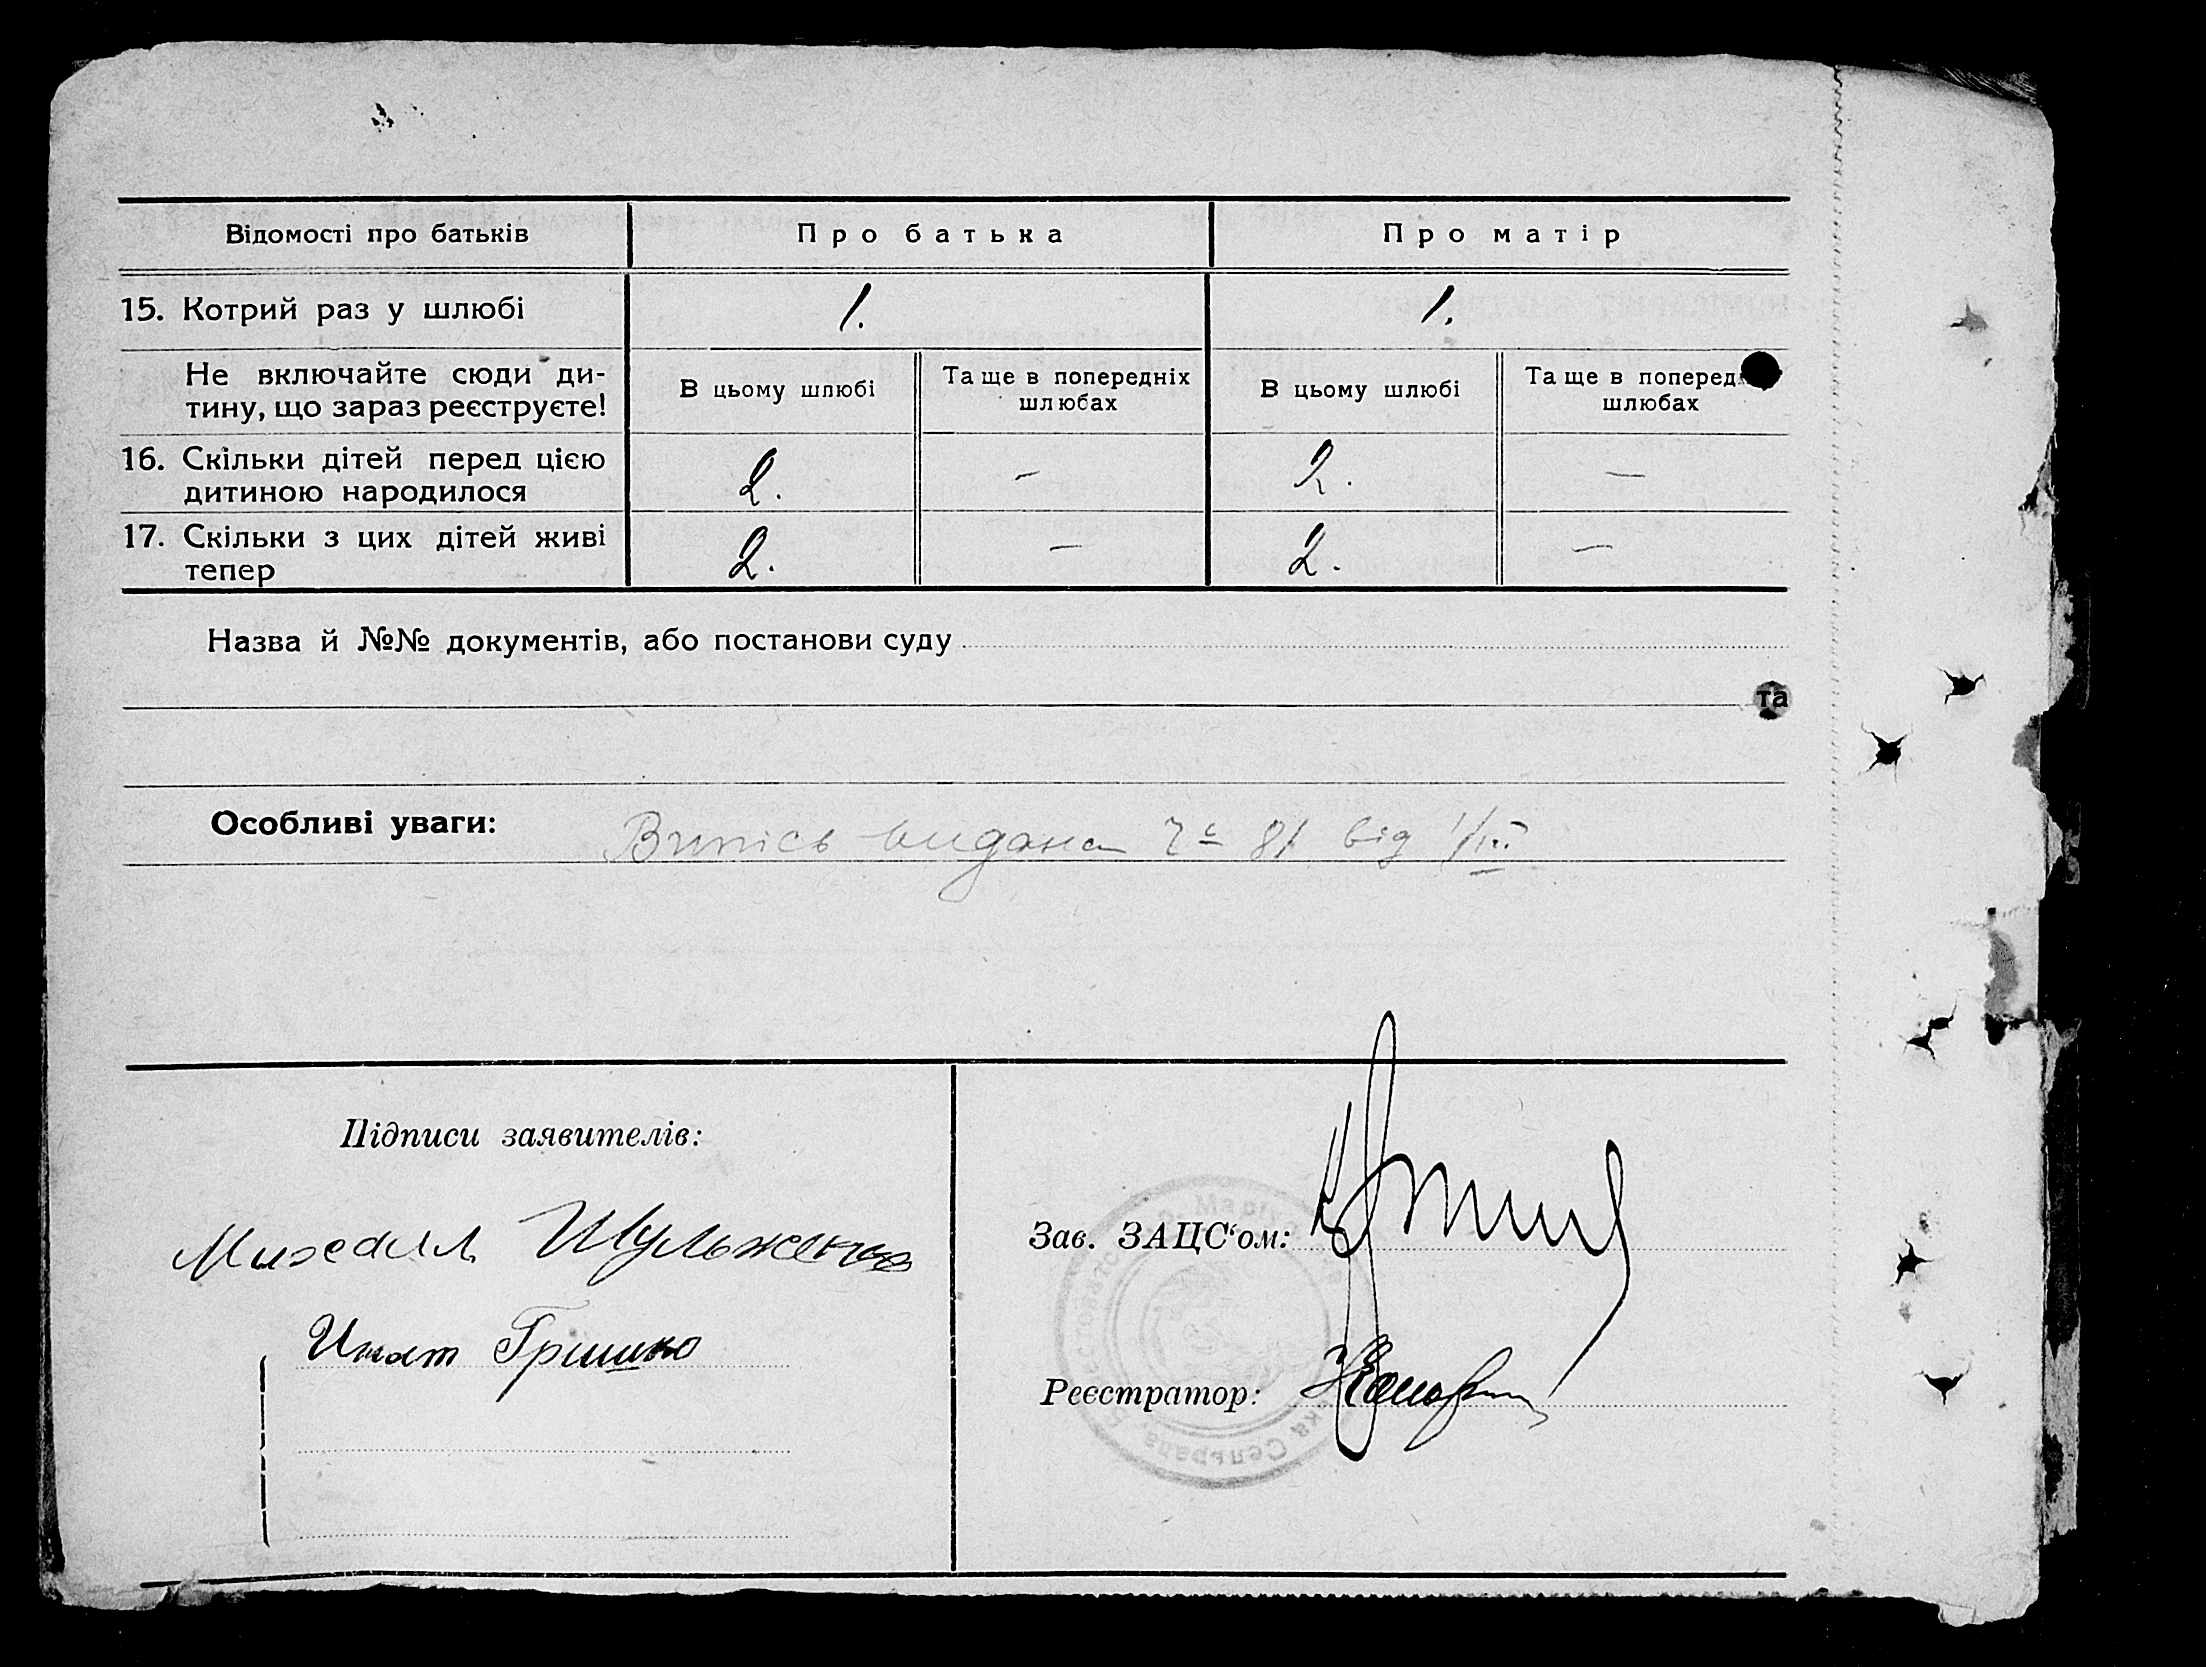 Відомості про батьків
Про батька
Про матір
15. Котрий раз у шлюбі
1.
1.
Не включайте сюди ди-
тину, що зараз реєструєте!
В цьому шлюбі
Та ще в попередніх
шлюбах
В цьому шлюбі
Та ще в поперед
шлюбах
16. Скільки дітей перед цією
дитиною народилося
2.
—
2.
—
17. Скільки з цих дітей живі
тепер
2.
—
2.
—
Назва й №№ документів, або постанови суду
та
Особливі уваги:
Випісь видана 81 від
Підписи заявителів:
Михаил Шульженко
Игнат Гришко
Зав. ЗАЦС‘ом:
Реєстратор:
Сельрада